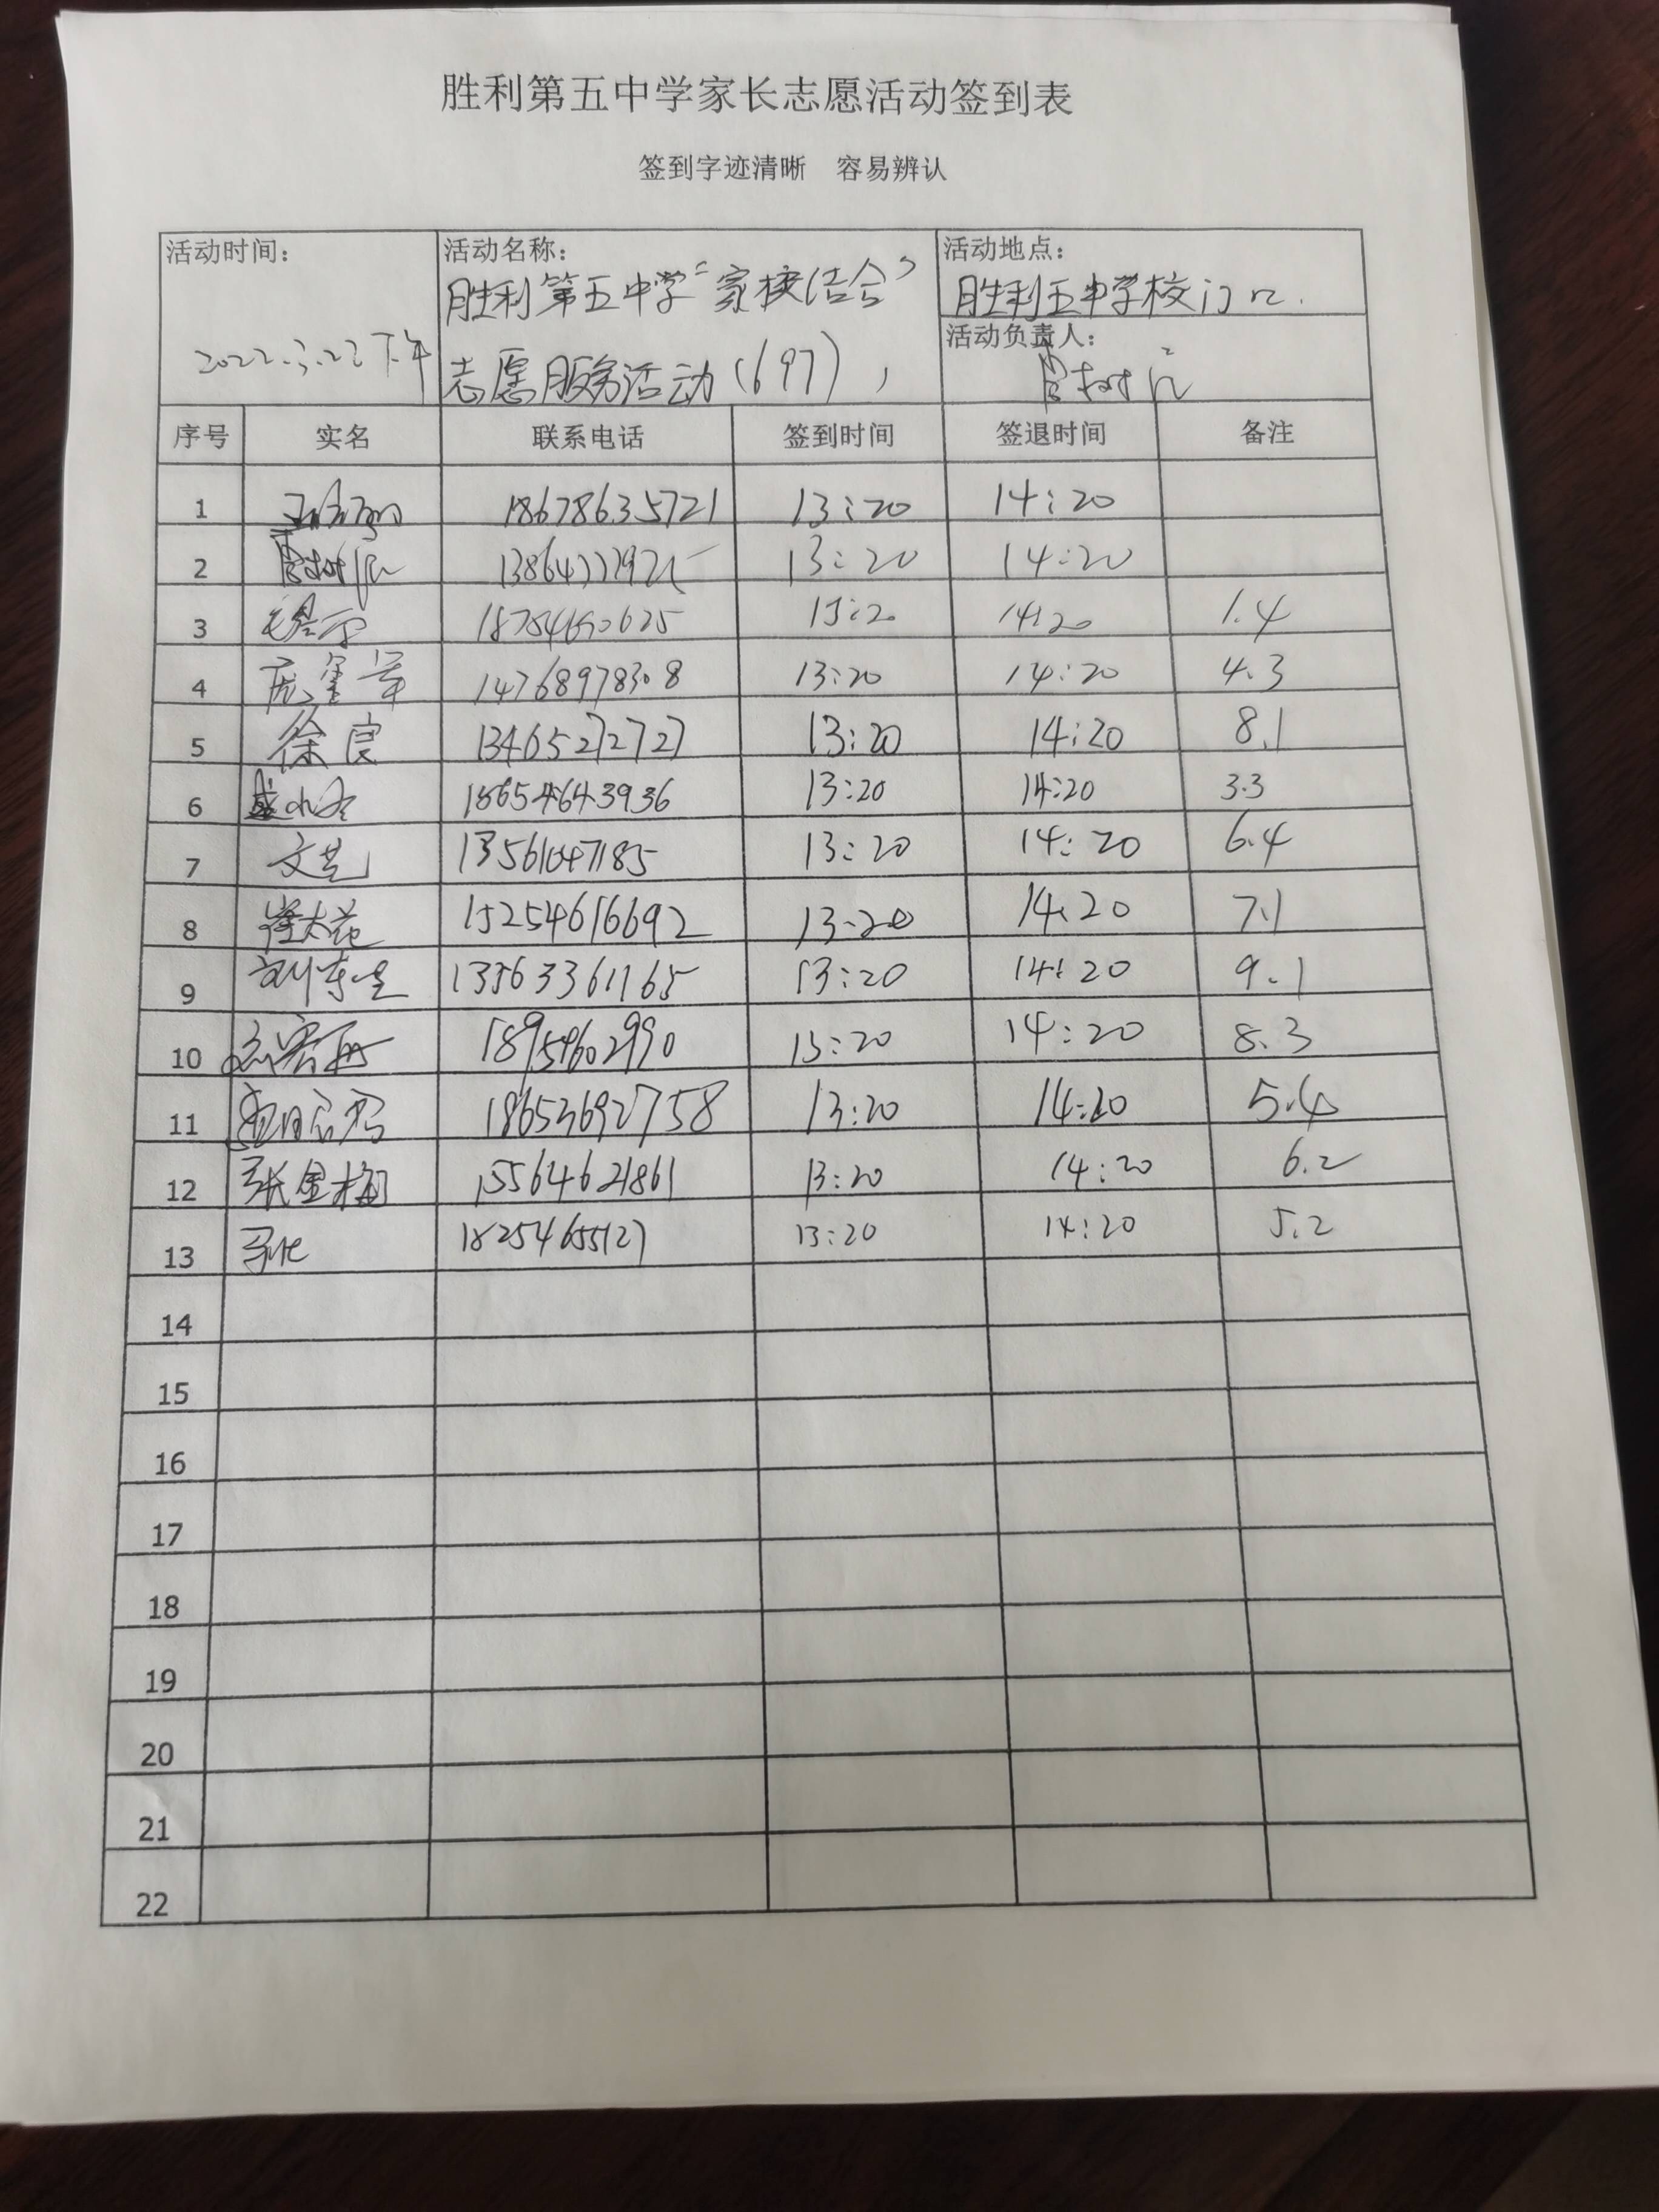 胜利第五中学家长志愿活动签到表
签到字迹清晰 容易辨认
活动时间： 活动名称： 活动地点：
胜利第五中学“家校结合” 胜利五中学校门口.
活动负责人：
2022.3.22下午 志愿服务活动(697)
序号 实名 联系电话 签到时间 签退时间 备注
1 18678635721 13:20 14:20
2 13:20 14:20
3 13:20 14:20 1.4
4 14768978308 13:20 14:20 4.3
5 徐良 13465272727 13:20 14:20 8.1
6 18654643936 13:20 14:20 3.3
7 文艺 13561047185 13:20 14:20 6.4
8 15254616692 13:20 14:20 7.1
9 13563361165 13:20 14:20 9.1
10 18954602990 13:20 14:20 8.3
11 18653692758 13:20 14:20 5.4
12 张金梅 15564621861 13:20 14:20 6.2
13 18254655127 13:20 14:20 5.2
14
15
16
17
18
19
20
21
22